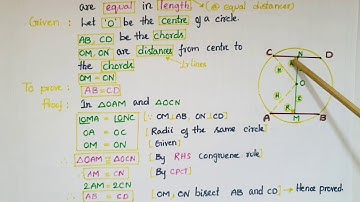 are equal in length. (@ equal distances)
Given : Let 'O' be the centre of a circle.
AB, CD be the chords
OM, ON are distances from centre to
the chords ⊥ lines
OM = ON
To prove : AB = CD
Proof : In △OAM and △OCN
∠OMA = ∠ONC [∵ OM⊥AB, ON⊥CD]
OA = OC [Radii of the same circle]
OM = ON [Given]
∴ △OAM ≅ △OCN [By RHS congruence rule]
∴ AM = CN [By CPCT]
2AM = 2CN
∴ AB = CD [OM, ON bisect AB and CD] → Hence proved.
C N D
R
H O
H S
R
A M B